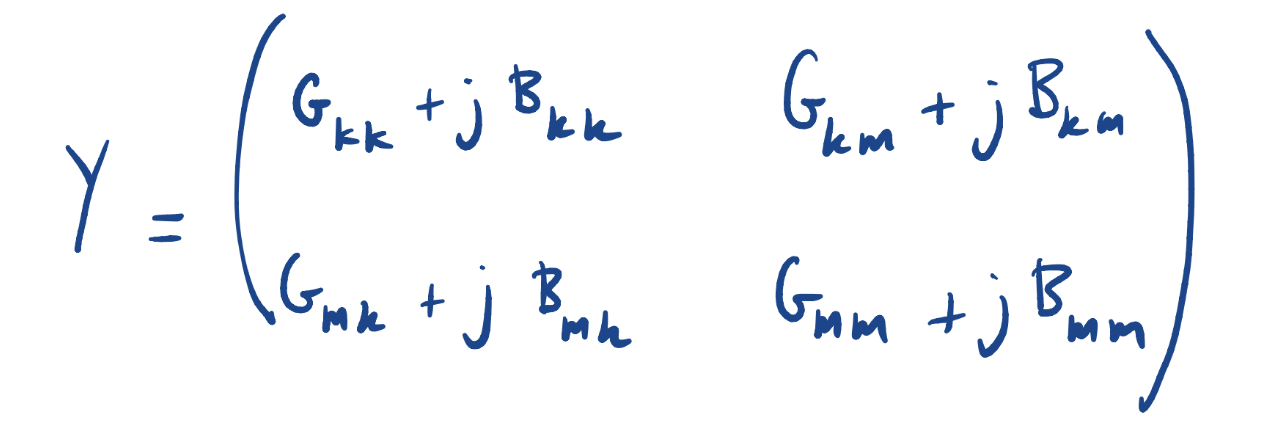 Y = ( G_kk + j B_kk   G_km + j B_km
G_mk + j B_mk   G_mm + j B_mm )